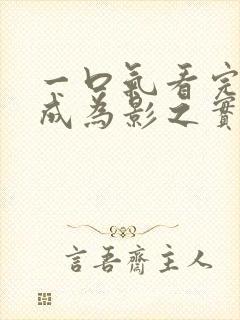 一口氣看完
成為影之實
言吾齋主人